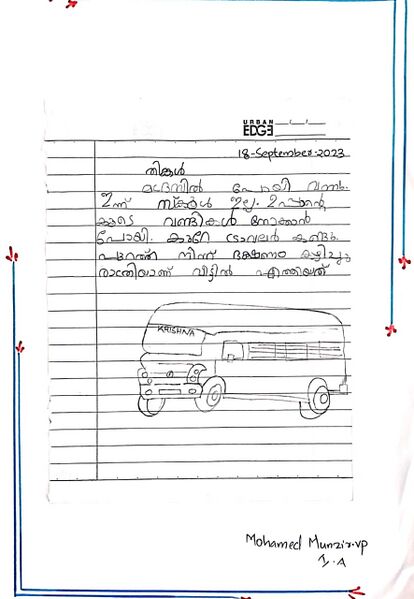 URBAN
EDGE
18-September-2023
തിങ്കൾ
മദ്രസിൽ പോയി വന്നു.
ഇന്ന് സ്കൂൾ ഇല്ല. ഉപ്പാന്റെ
കൂടെ വണ്ടികൾ നോക്കാൻ
പോയി. കുറേ ട്രാവലർ കണ്ടു.
പുറത്ത് നിന്ന് ഭക്ഷണം കഴിച്ചു
രാത്രിയാണ് വീട്ടിൽ എത്തിയത്
KRISHNA
Mohamed Munzir.vp
1.A